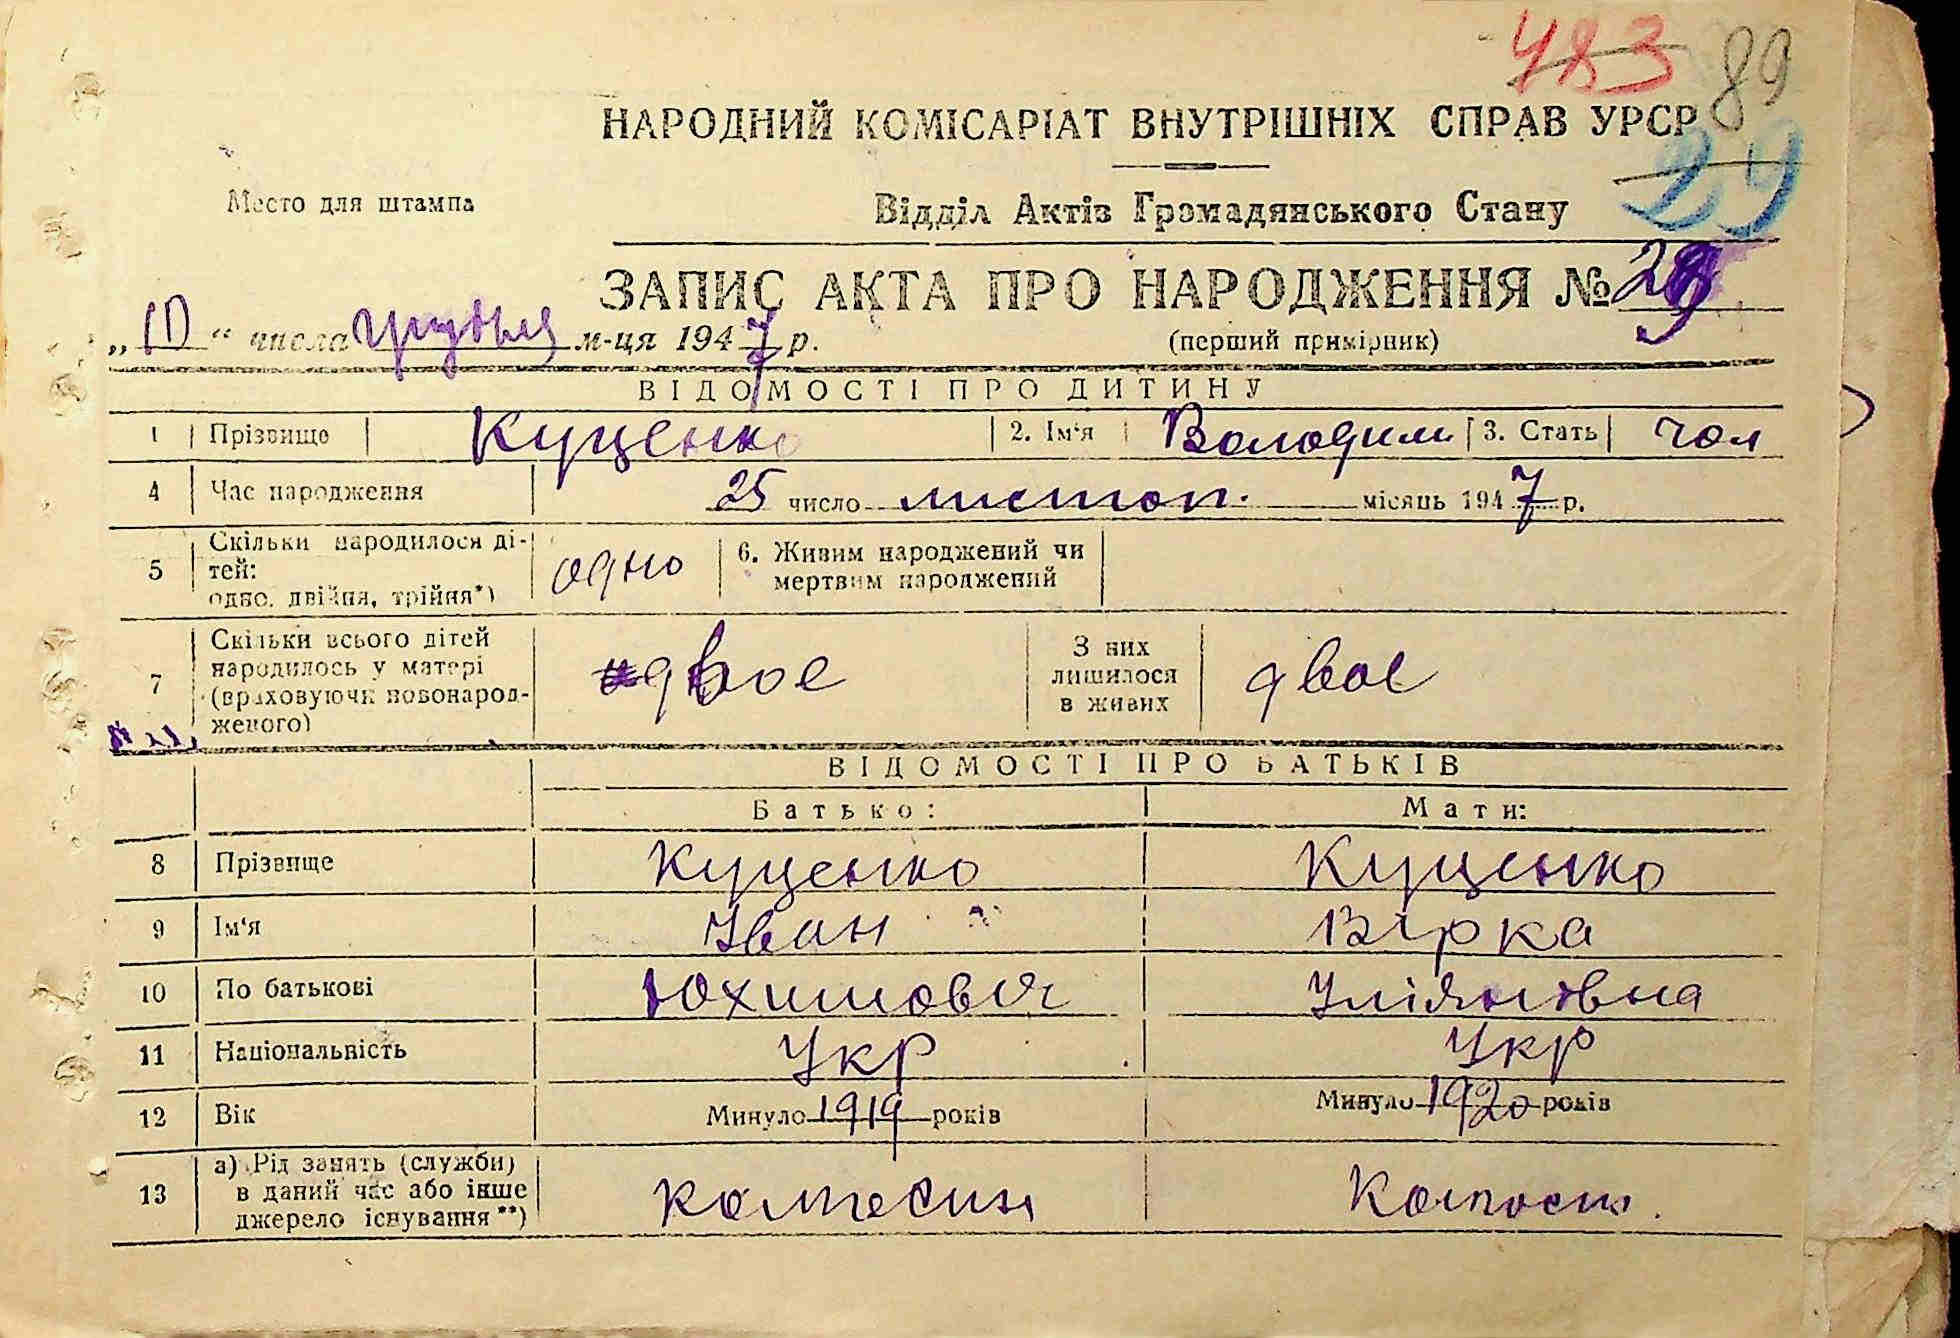 483 89
НАРОДНИЙ КОМІСАРІАТ ВНУТРІШНІХ СПРАВ УРСР
29
Место для штампа
Відділ Актів Громадянського Стану
ЗАПИС АКТА ПРО НАРОДЖЕННЯ № 29
„10“ числа грудня м-ця 1947 р.
(перший примірник)
ВІДОМОСТІ ПРО ДИТИНУ
1 Прізвище Куценко 2. Ім'я Володим 3. Стать чол
4 Час народження 25 число листоп. місяць 1947 р.
5 Скільки народилося ді-
тей:
одно, двійня, трійня*)
одно
6. Живим народжений чи
мертвим народжений
7 Скільки всього дітей
народилось у матері
(враховуючи новонарод-
женого)
двое
З них
лишилося
в живих
двое
ВІДОМОСТІ ПРО БАТЬКІВ
Батько: Мати:
8 Прізвище Куценко Куценко
9 Ім'я Іван Вірка
10 По батькові Юхимович Уліянівна
11 Національність Укр Укр
12 Вік Минуло 1919 років Минуло 1920 років
13 а) Рід занять (служби)
в даний час або інше
джерело існування**)